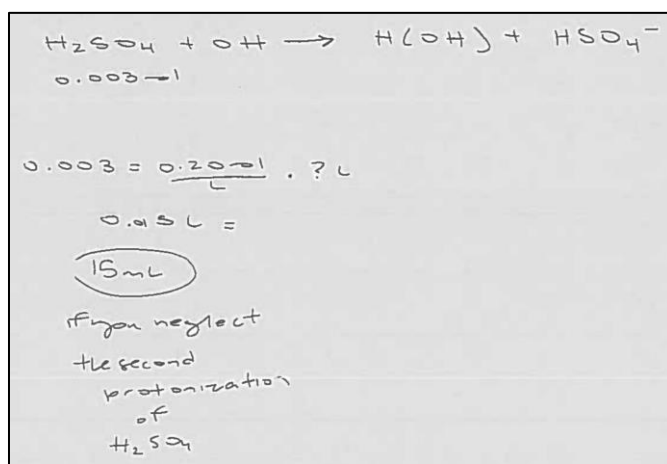 H₂SO₄ + OH → H(OH) + HSO₄⁻
0.003 mol
0.003 = 0.20 mol/L · ? L
0.015 L =
15 mL
if you neglect
the second
protonization
of
H₂SO₄